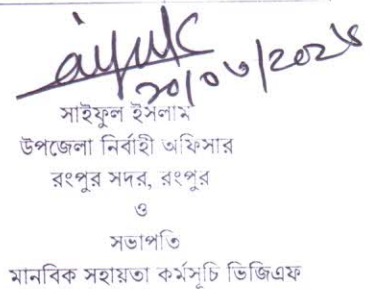 সাইফুল ইসলাম
উপজেলা নির্বাহী অফিসার
রংপুর সদর, রংপুর
ও
সভাপতি
মানবিক সহায়তা কর্মসূচি ভিজিএফ